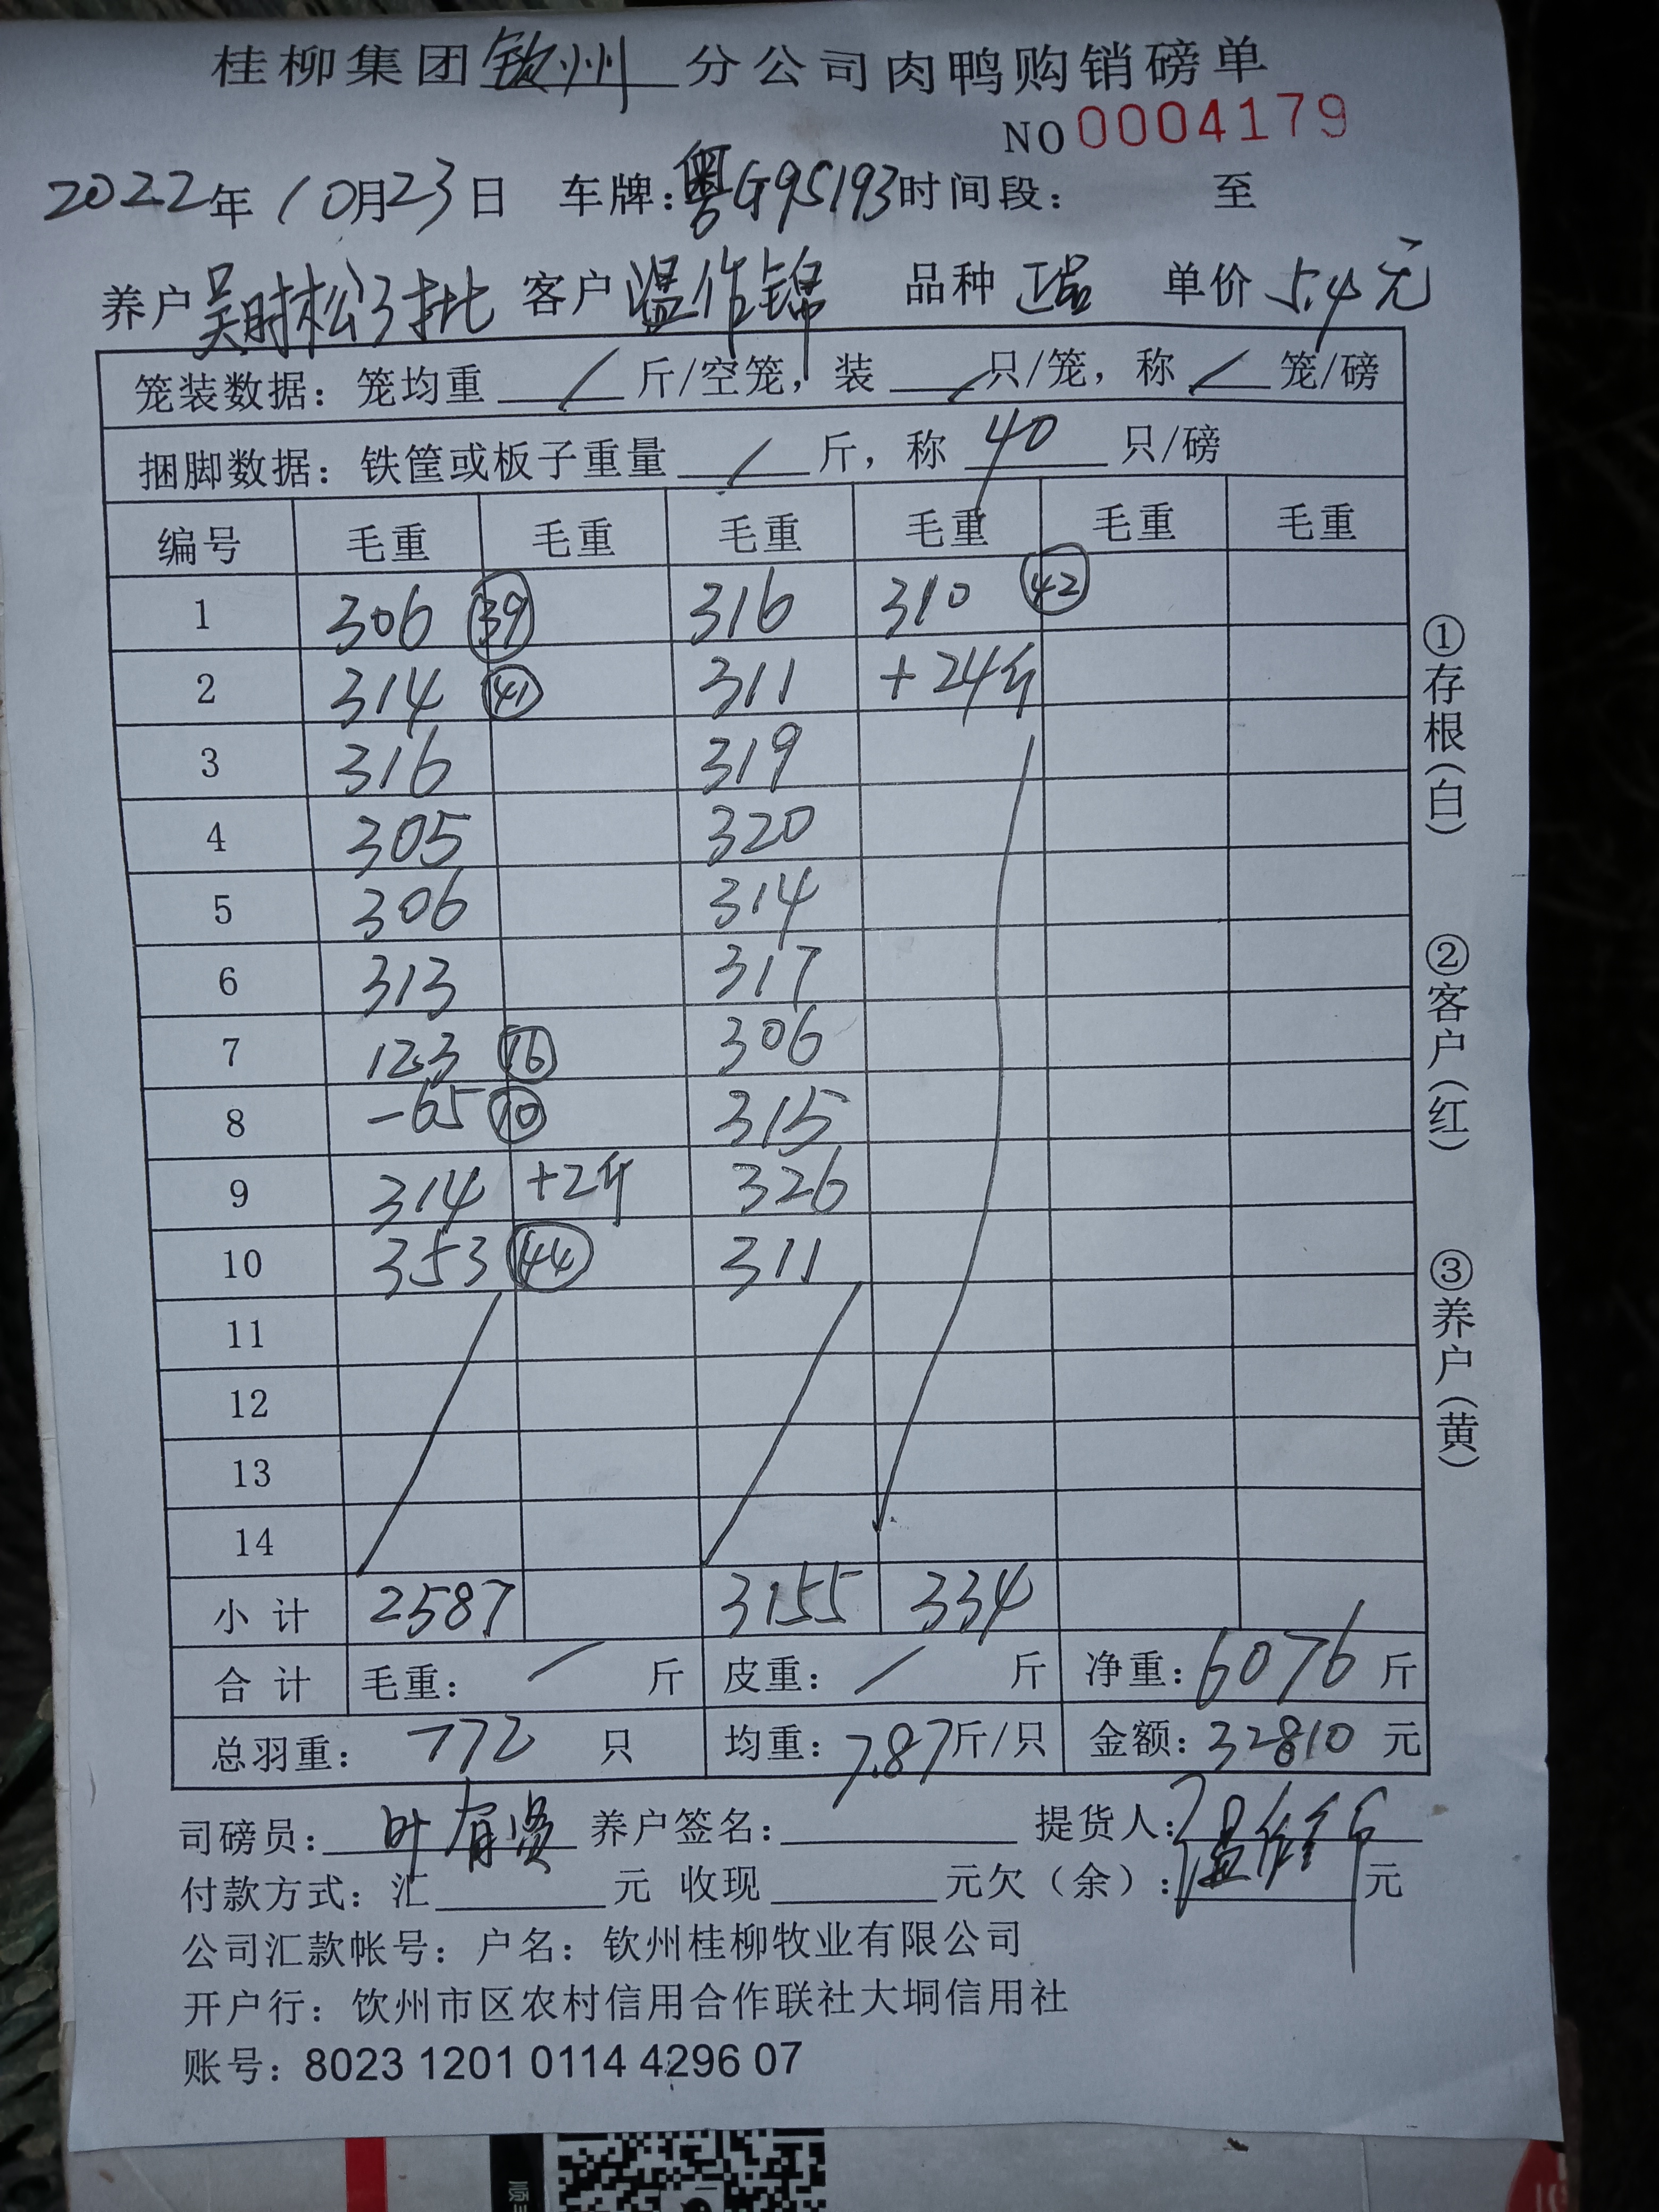 桂柳集团钦州分公司肉鸭购销磅单
NO 0004179
2022年10月23日 车牌:粤G95193时间段: 至
养户吴时松3批 客户温作锦 品种 正品 单价 5.4元
笼装数据: 笼均重 / 斤/空笼, 装 / 只/笼, 称 / 笼/磅
捆脚数据: 铁筐或板子重量 / 斤, 称 40 只/磅
编号 毛重 毛重 毛重 毛重 毛重 毛重
1 306 39 316 310 42
2 314 41 311 +24斤
3 316 319
4 305 320
5 306 314
6 313 317
7 123 16 306
8 -65 10 315
9 314 +2斤 326
10 353 44 311
11
12
13
14
小计 2587 3155 334
合计 毛重: / 斤 皮重: / 斤 净重: 6076 斤
总羽重: 772 只 均重: 7.87斤/只 金额: 32810 元
①存根(白)
②客户(红)
③养户(黄)
司磅员: 叶有贤 养户签名: 提货人: 温作锦
付款方式: 汇 元 收现 元欠(余): 元
公司汇款帐号: 户名: 钦州桂柳牧业有限公司
开户行: 钦州市区农村信用合作联社大垌信用社
账号: 8023 1201 0114 4296 07